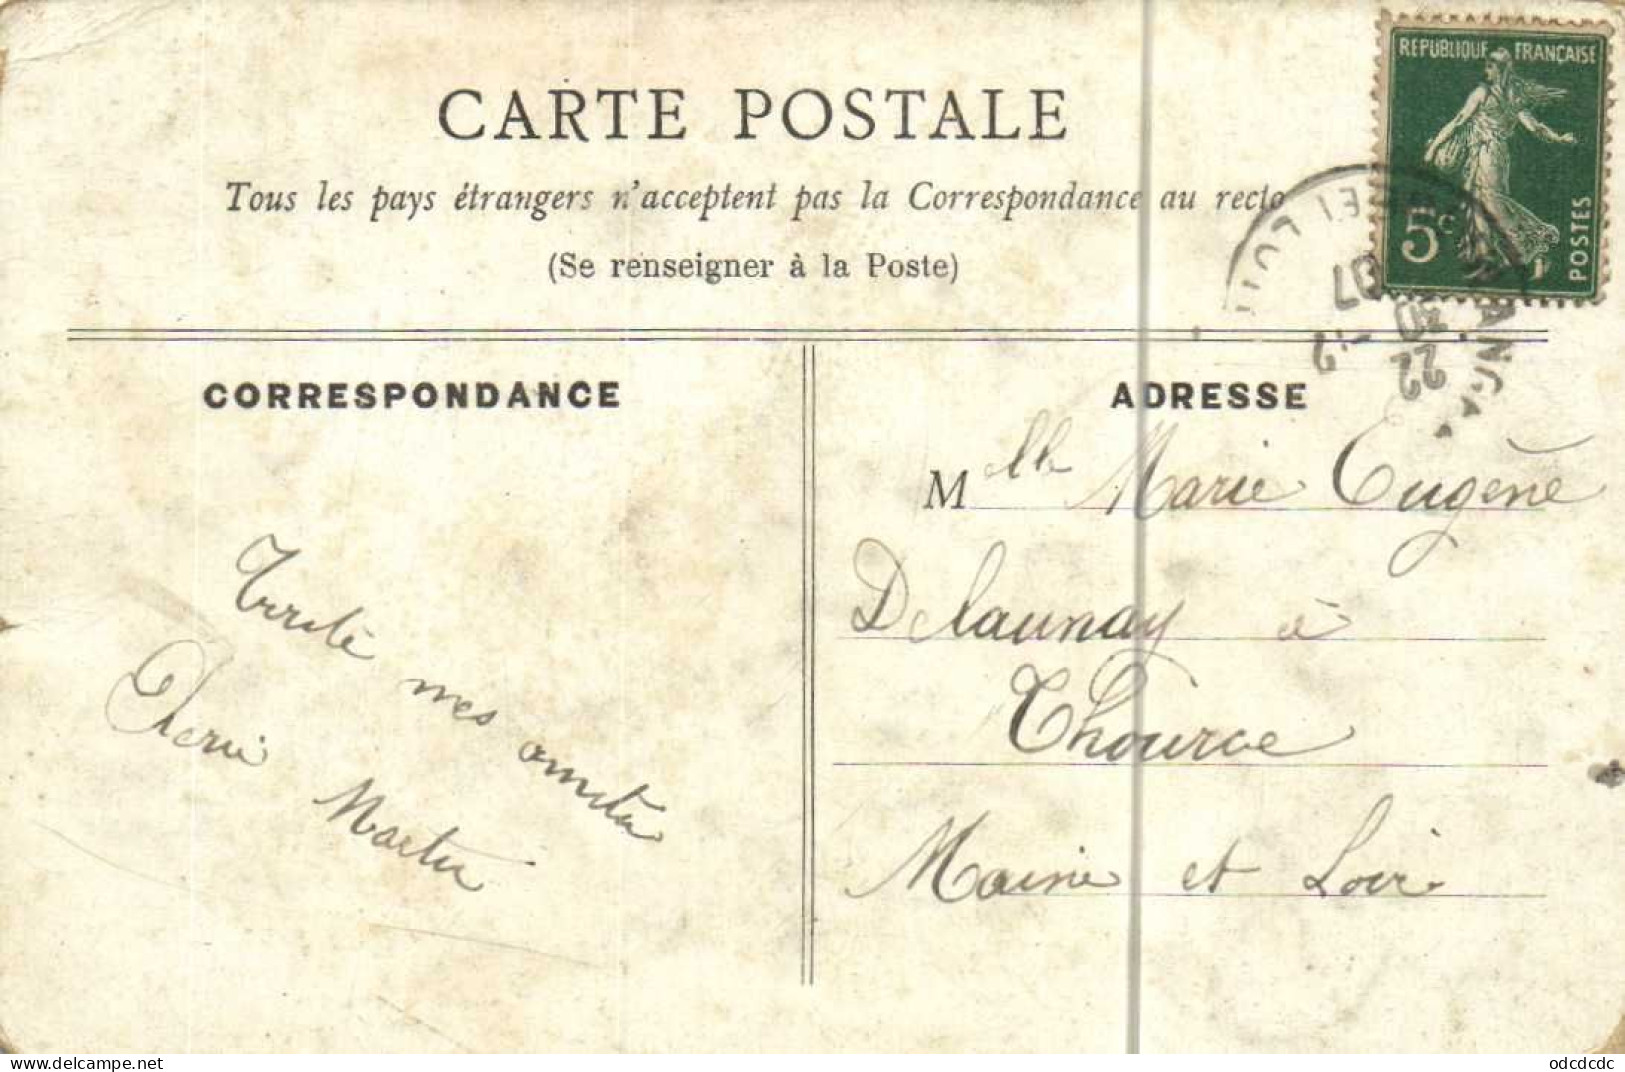 CARTE POSTALE
Tous les pays étrangers n'acceptent pas la Correspondance au recto
(Se renseigner à la Poste)
REPUBLIQUE FRANÇAISE
5c
POSTES
22
30
07
CORRESPONDANCE
mes
Martin
ADRESSE
Mlle Marie Eugène
Delaunay à
Thource
Maine et Loire
delcampe.net
odcdcdc